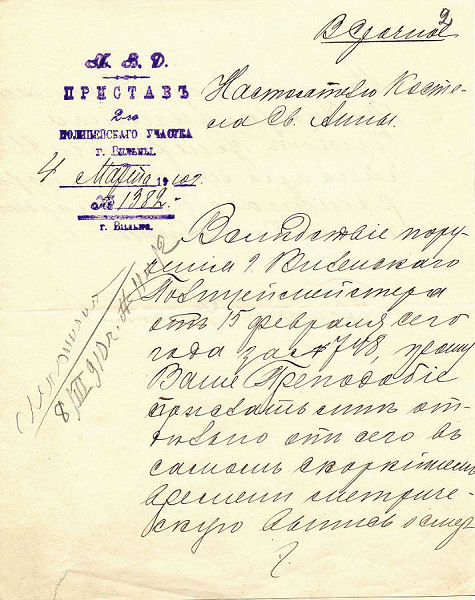 2
В срочное
М. В. Д.
ПРИСТАВЪ
2-го
ПОЛИЦЕЙСКАГО УЧАСТКА
г. Вильны.
4 Марта 1910 г.
№ 1382.-
г. Вильна.
Настоятелю Косте-
ла Св. Анны.
Вслѣдствіе пору-
ченія г. Виленскаго
Полицеймейстера
отъ 15 февраля сего
года за № 748, прошу
Ваше Преподобіе
прислать мнѣ от-
дѣльно отъ сего въ
самомъ скорѣйшемъ
времени метриче-
скую выпись о смер
8/III 910 г. №